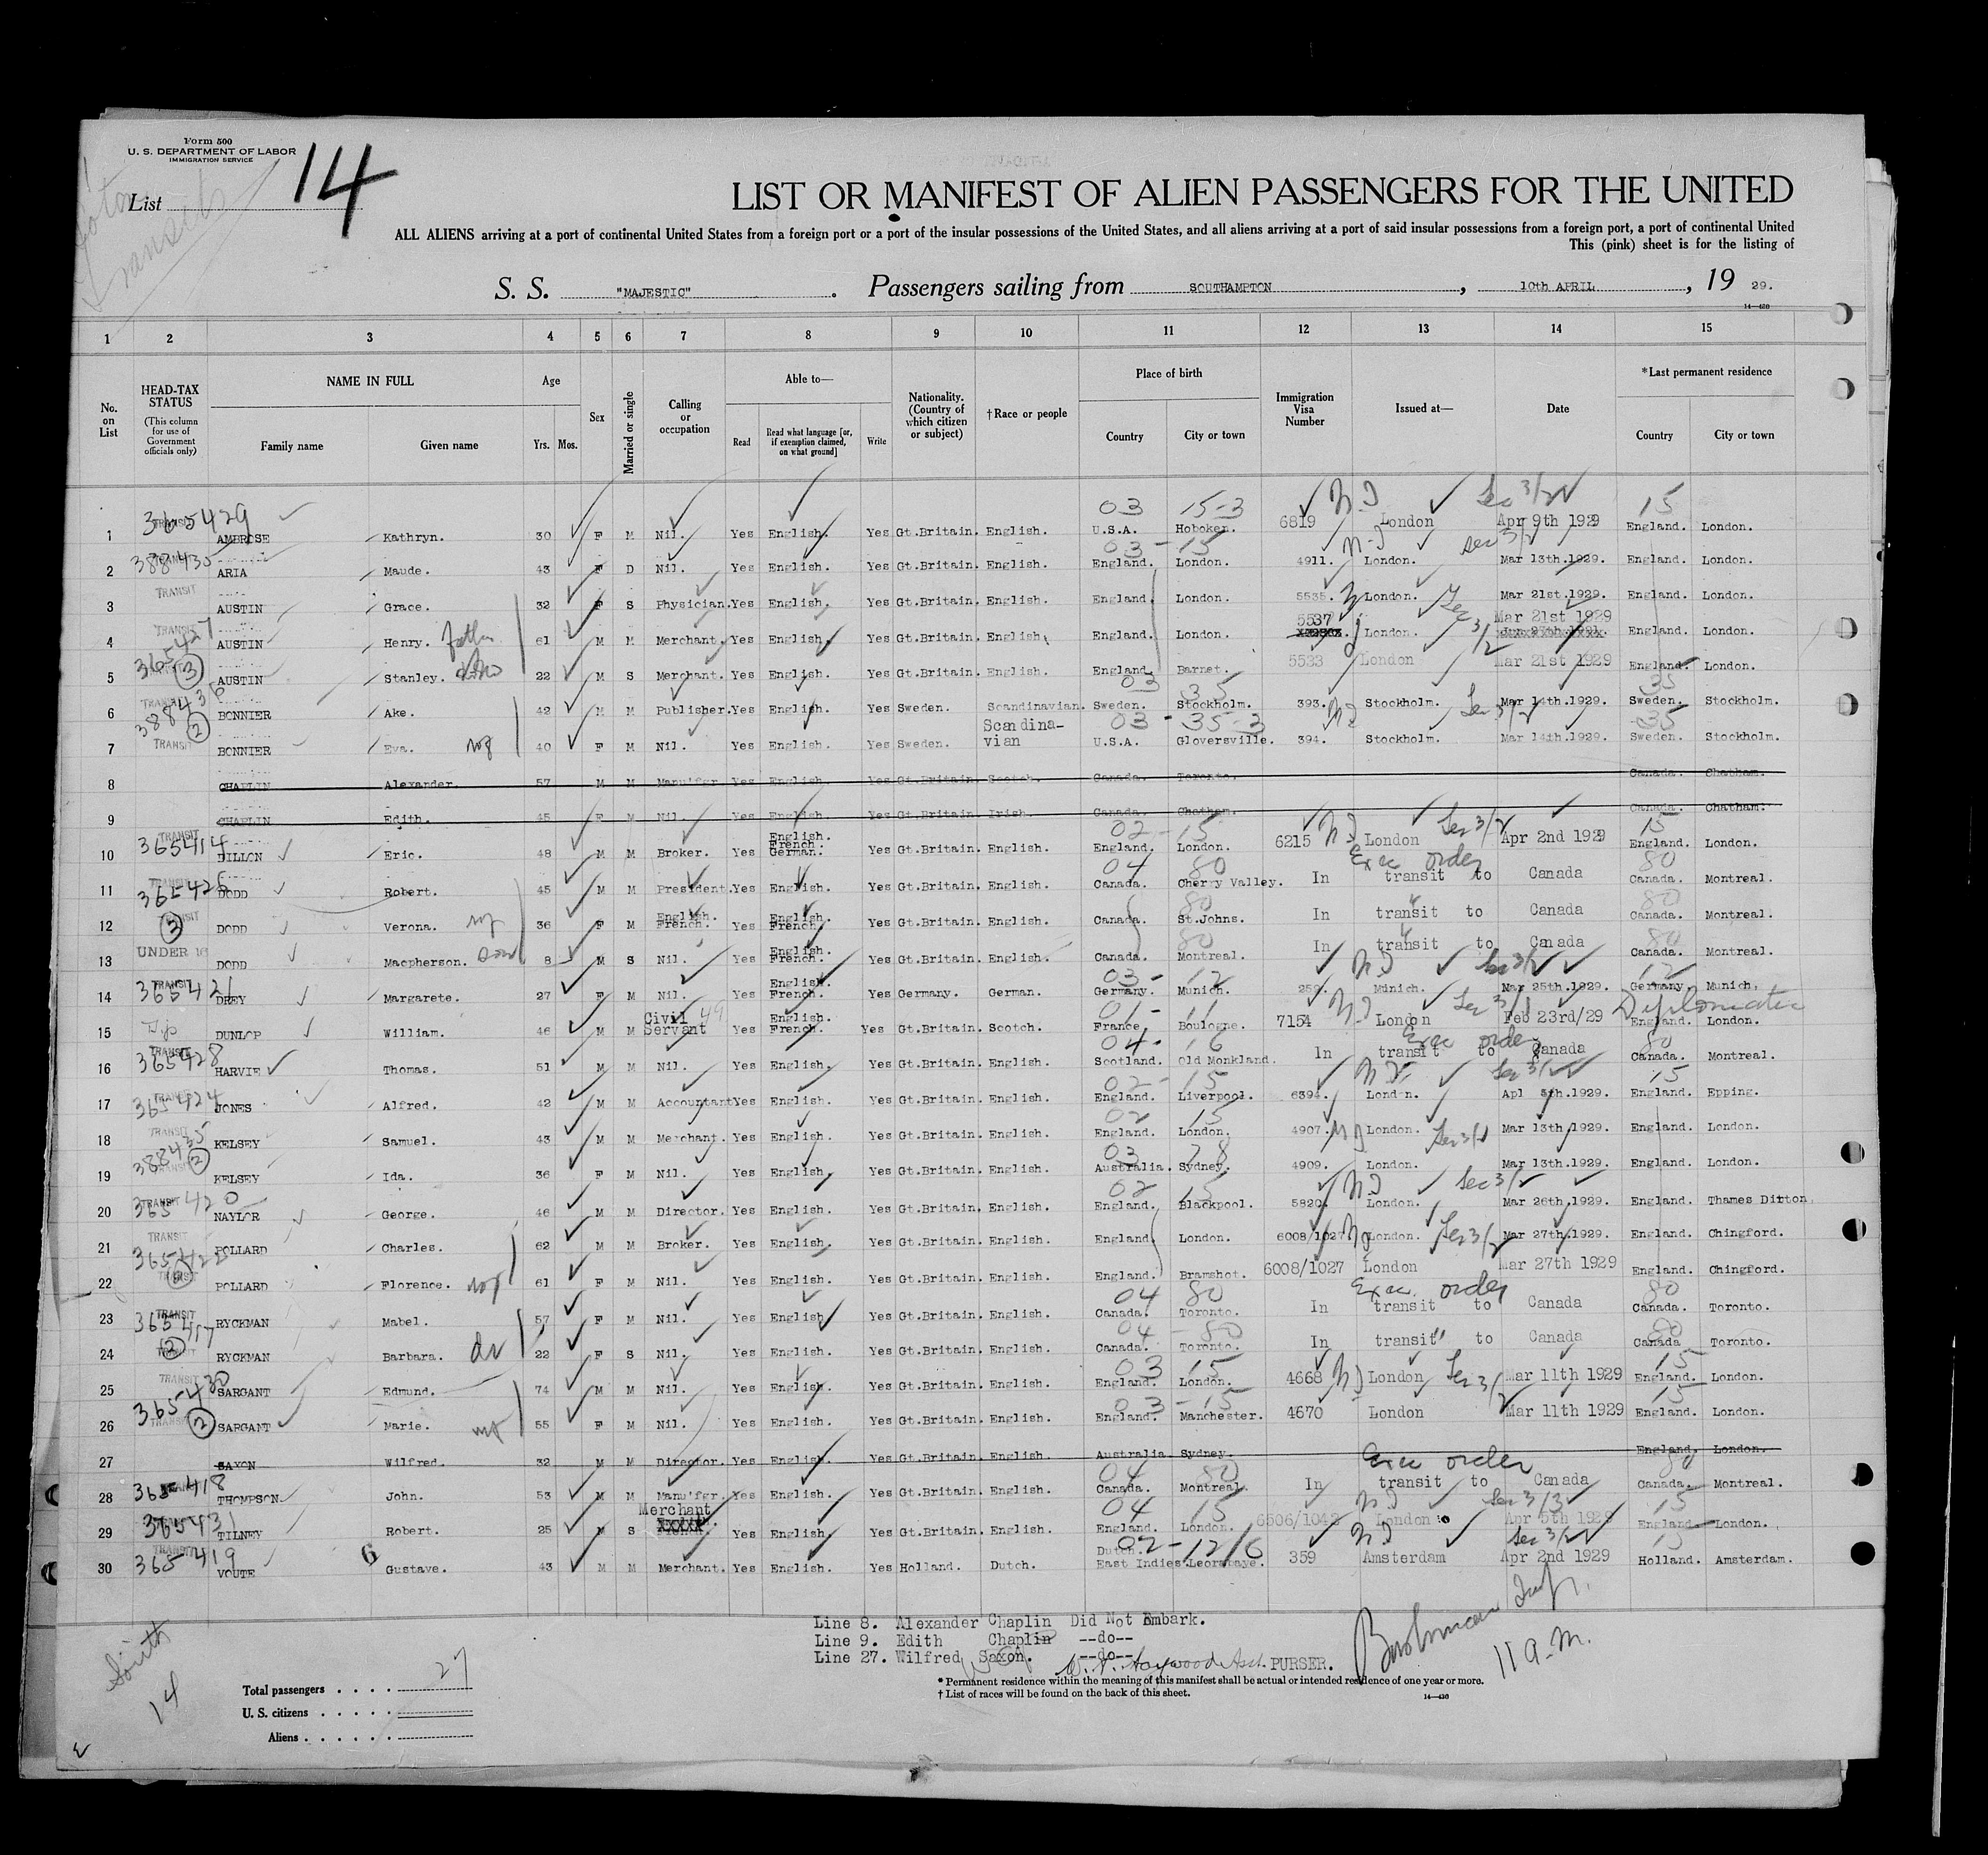 Form 500
U. S. DEPARTMENT OF LABOR
IMMIGRATION SERVICE
List 14
LIST OR MANIFEST OF ALIEN PASSENGERS FOR THE UNITED
ALL ALIENS arriving at a port of continental United States from a foreign port or a port of the insular possessions of the United States, and all aliens arriving at a port of said insular possessions from a foreign port, a port of continental United
This (pink) sheet is for the listing of
S. S. "MAJESTIC". Passengers sailing from SOUTHAMPTON, 10th APRIL, 19 29.
14—430
1 2 3 4 5 6 7 8 9 10 11 12 13 14 15
No. on List
HEAD-TAX STATUS (This column for use of Government officials only)
NAME IN FULL Family name Given name
Age Yrs. Mos.
Sex
Married or single
Calling or occupation
Able to— Read Read what language [or, if exemption claimed, on what ground] Write
Nationality. (Country of which citizen or subject)
†Race or people
Place of birth Country City or town
Immigration Visa Number
Issued at—
Date
*Last permanent residence Country City or town
1 TRANSIT 365429 AMBROSE Kathryn. 30 F M Nil. Yes English. Yes Gt.Britain. English. U.S.A. Hoboken. 6819 London Apr 9th 1929 England. London.
2 TRANSIT 388435 ARIA Maude. 43 F D Nil. Yes English. Yes Gt.Britain. English. England. London. 4911. London. Mar 13th.1929. England. London.
3 TRANSIT AUSTIN Grace. 32 F S Physician. Yes English. Yes Gt.Britain. English. England. London. 5535. London. Mar 21st.1929. England. London.
4 TRANSIT 365427 AUSTIN Henry. father 61 M M Merchant. Yes English. Yes Gt.Britain. English. England. London. 5537 London. Mar 21st 1929 England. London.
5 (3) AUSTIN Stanley. 22 M S Merchant. Yes English. Yes Gt.Britain. English. England. Barnet. 5533 London Mar 21st 1929 England. London.
6 TRANSIT 388436 BONNIER Ake. 42 M M Publisher. Yes English. Yes Sweden. Scandinavian. Sweden. Stockholm. 393. Stockholm. Mar 14th.1929. Sweden. Stockholm.
7 (2) TRANSIT BONNIER Eva. wf 40 F M Nil. Yes English. Yes Sweden. Scandina-vian U.S.A. Gloversville. 394. Stockholm. Mar 14th.1929. Sweden. Stockholm.
8 CHAPLIN Alexander. 57 M M Manu'fer Yes English. Yes Gt.Britain Scotch. Canada. Toronto. Canada. Chatham.
9 CHAPLIN Edith. 45 F M Nil. Yes English. Yes Gt.Britain Irish. Canada. Chatham. Canada. Chatham.
10 TRANSIT 365414 DILLON Eric. 48 M M Broker. Yes English. French. German. Yes Gt.Britain. English. England. London. 6215 London Apr 2nd 1929 England. London.
11 TRANSIT DODD Robert. 45 M M President. Yes English. Yes Gt.Britain. English. Canada. Cherry Valley. In transit to Canada Exec order Canada. Montreal.
12 (3) TRANSIT DODD Verona. wf 36 F M English. French. Yes English. French. Yes Gt.Britain. English. Canada. St.Johns. In transit to Canada Canada. Montreal.
13 UNDER 16 DODD Macpherson. Son 8 M S Nil. Yes English. French. Yes Gt.Britain. English. Canada. Montreal. In transit to Canada Canada. Montreal.
14 TRANSIT 365421 DREY Margarete. 27 F M Nil. Yes English. French. Yes Germany. German. Germany. Munich. 259. Munich. Mar 25th.1929. Germany. Munich.
15 Dip DUNLOP William. 46 M M Civil Servant Yes English. French. Yes Gt.Britain. Scotch. France. Boulogne. 7154 London Feb 23rd/29 Diplomatic England. London.
16 TRANSIT 365428 HARVIE Thomas. 51 M M Nil. Yes English. Yes Gt.Britain. English. Scotland. Old Monkland. In transit to Canada Exec order Canada. Montreal.
17 TRANSIT 365424 JONES Alfred. 42 M M Accountant Yes English. Yes Gt.Britain. English. England. Liverpool. 6394. London. Apl 5th.1929. England. Epping.
18 TRANSIT 388435 KELSEY Samuel. 43 M M Merchant. Yes English. Yes Gt.Britain. English. England. London. 4907. London. Mar 13th.1929. England. London.
19 (2) TRANSIT KELSEY Ida. 36 F M Nil. Yes English. Yes Gt.Britain. English. Australia. Sydney. 4909. London. Mar 13th.1929. England. London.
20 TRANSIT 365420 NAYLOR George. 46 M M Director. Yes English. Yes Gt.Britain. English. England. Blackpool. 5820. London. Mar 26th.1929. England. Thames Ditton
21 TRANSIT POLLARD Charles. 62 M M Broker. Yes English. Yes Gt.Britain. English. England. London. 6008/1027 London. Mar 27th.1929. England. Chingford.
22 TRANSIT POLLARD Florence. wf 61 F M Nil. Yes English. Yes Gt.Britain. English. England. Bramshot. 6008/1027 London Mar 27th 1929 England. Chingford.
23 TRANSIT 365417 RYCKMAN Mabel. 57 F M Nil. Yes English. Yes Gt.Britain. English. Canada. Toronto. In transit to Canada Exec. order Canada. Toronto.
24 (2) RYCKMAN Barbara. 22 F S Nil. Yes English. Yes Gt.Britain. English. Canada. Toronto. In transit to Canada Canada Toronto.
25 TRANSIT 365430 SARGANT Edmund. 74 M M Nil. Yes English. Yes Gt.Britain. English. England. London. 4668 London Mar 11th 1929 England. London.
26 TRANSIT (2) SARGANT Marie. wf 55 F M Nil. Yes English. Yes Gt.Britain. English. England. Manchester. 4670 London Mar 11th 1929 England. London.
27 SAXON Wilfred. 32 M M Director. Yes English. Yes Gt.Britain. English. Australia Sydney. England. London.
28 365418 THOMPSON John. 53 M M Manu'fer. Yes English. Yes Gt.Britain. English. Canada. Montreal. In transit to Canada Exec order Canada. Montreal.
29 365431 TILNEY Robert. 25 M S Merchant Yes English. Yes Gt.Britain. English. England. London. 6506/1042 London Apr 5th 1929 England London.
30 TRANSIT 365419 VOUTE Gustave. 43 M M Merchant. Yes English. Yes Holland. Dutch. Dutch East Indies. 359 Amsterdam Apr 2nd 1929 Holland. Amsterdam.
Line 8. Alexander Chaplin Did Not Embark.
Line 9. Edith Chaplin --do--
Line 27. Wilfred Saxon. --do--
Asst. PURSER.
11 a.m.
South
14
Total passengers . . . . 27
U. S. citizens . . . . .
Aliens . . . . . .
* Permanent residence within the meaning of this manifest shall be actual or intended residence of one year or more.
† List of races will be found on the back of this sheet.
14—430